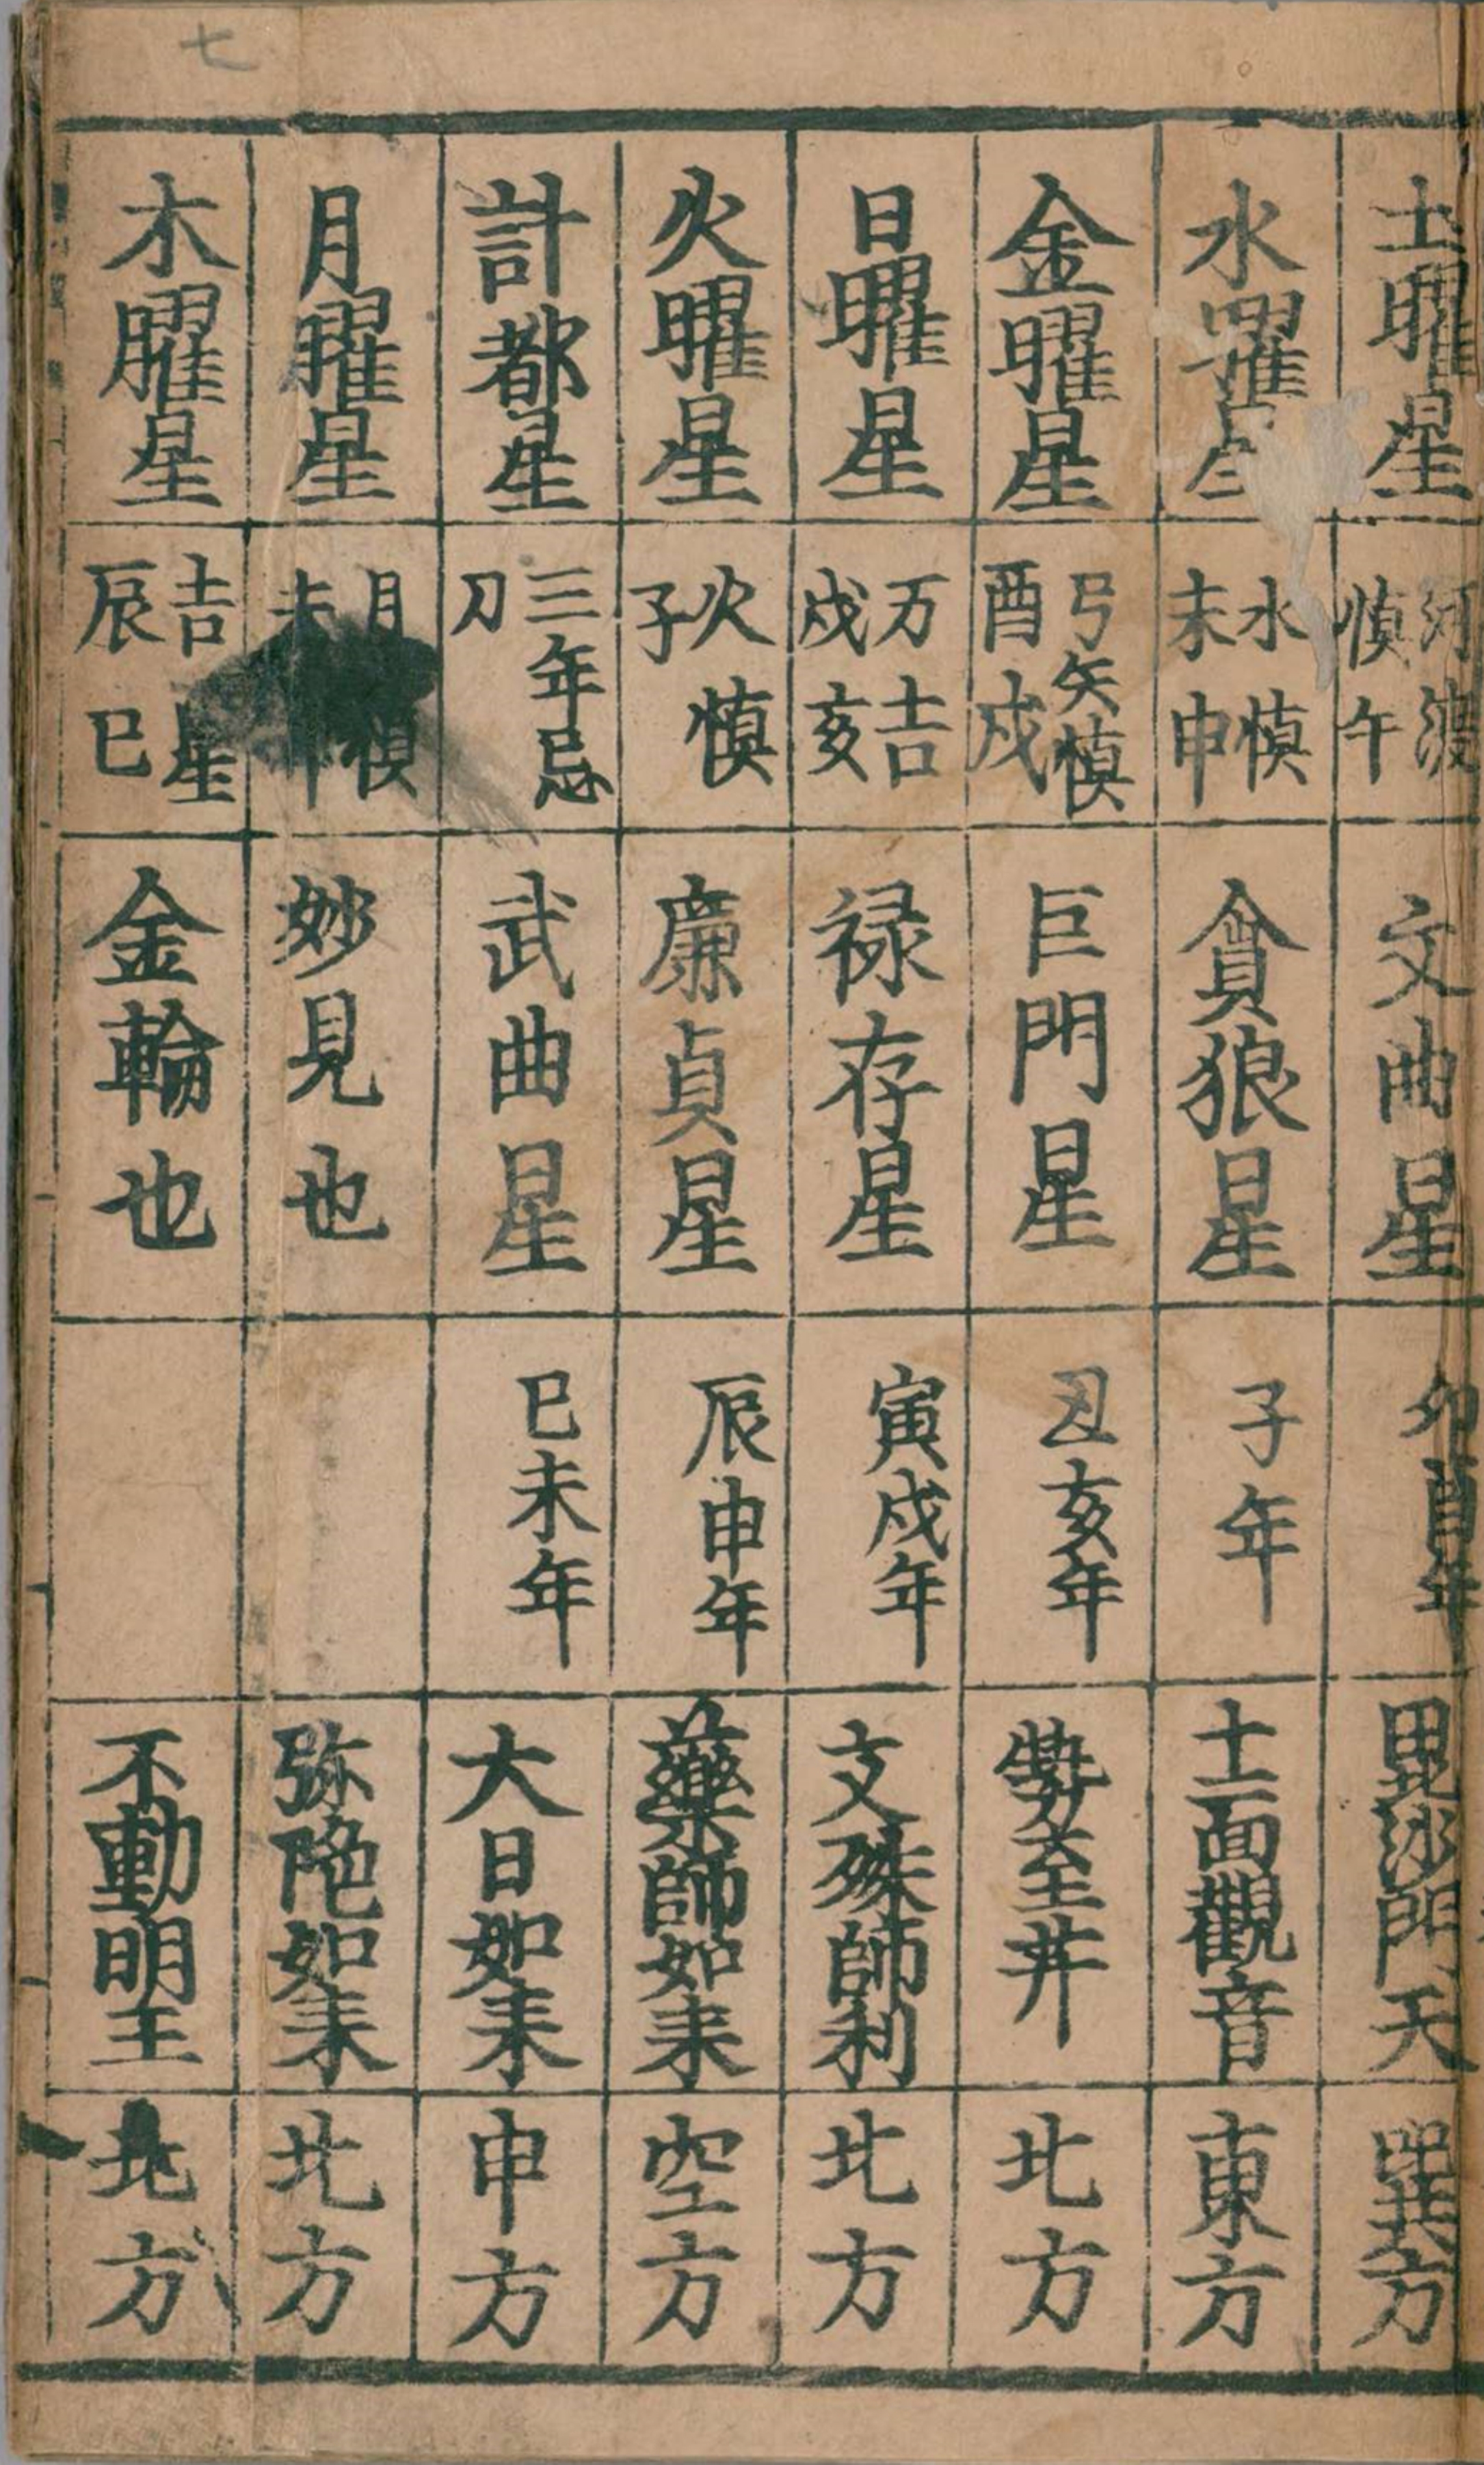 七
土曜星
河渡
慎午
文曲星
卯酉年
毘沙門天
巽方
水曜星
水慎
未申
貪狼星
子年
十一面觀音
東方
金曜星
弓矢慎
酉戌
巨門星
丑亥年
勢至菩薩
北方
日曜星
万吉
戌亥
禄存星
寅戌年
文殊師利
北方
火曜星
火慎
子
廉貞星
辰申年
藥師如来
空方
計都星
三年忌
刀
武曲星
巳未年
大日如来
申方
月曜星
月慎
妙見也
弥陀如来
北方
木曜星
吉星
辰巳
金輪也
不動明王
北方